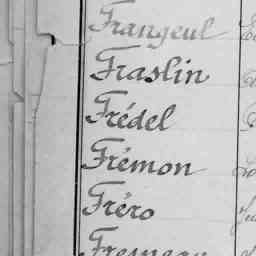 Frangeul
Fraslin
Frédel
Frémon
Fréro